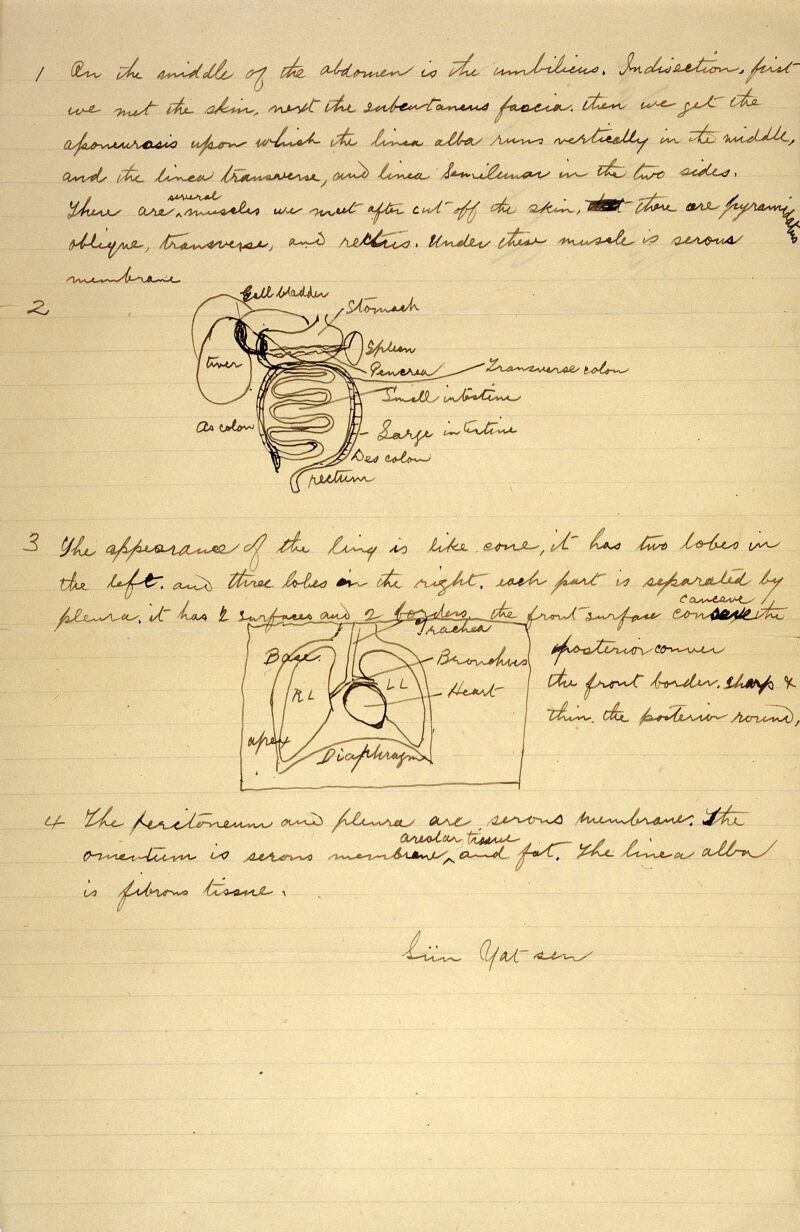 1 On the middle of the abdomen is the umbilicus. Indisection, first
we met the skin, next the subcutaneus fascia. then we get the
aponeurosis upon which the linea alba runs vertically in the middle,
and the linea transverse, and linea Semilunar in the two sides.
several
There are muscles we meet after cut off the skin, there are pyramidatus
oblique, transverse, and rectus. Under these muscle is serous
membrane
2
Gall bladder
Stomach
Liver
Spleen
Pencrea
Transverse colon
Small intestine
As colon
Large intestine
Des colon
rectum
3 The appearance of the ling is like cone, it has two lobes in
the left. and three lobes in the right. each part is separated by
concave
pleura. it has 2 surfaces and 2 borders. the front surface the
Trachea
Base.
Bronchus
posterior convex
RL
LL
Heart
the front border. sharp &
thin. the posterior round,
apex
Diaphragm
4 The peritoneum and pleura are serous membrane. The
areolar tissue
omentum is serous membrane ^ and fat. The linea alba
is fibrous tissue.
Sün Yat sen